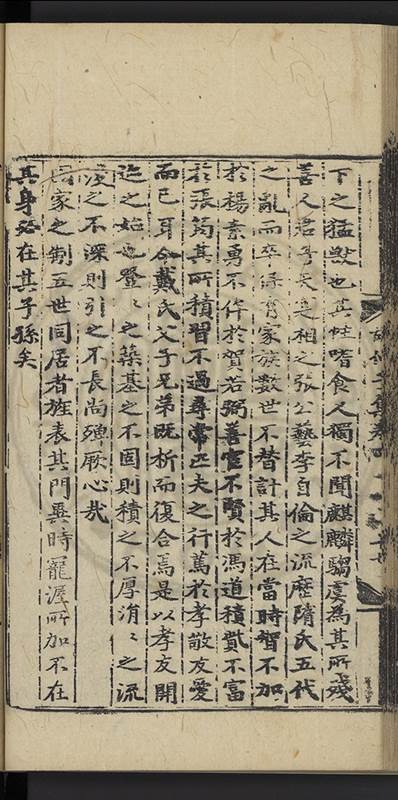 下之猛獸也其性嗜食人獨不聞麒麟騶虞為其所殘
善人君子天之相之張公藝李自倫之流歷隋氏五代
之亂而卒保有家族數世不替計其人在當時智不加
於楊素勇不侔於賀若弼善宦不賢於馮道積貲不富
於張筠其所積習不過尋常匹夫之行篤於孝敬友愛
而已耳今戴氏父子兄弟既析而復合焉是以孝友開
迹之始也壘〻之築基之不固則積之不厚涓〻之流
浚之不深則引之不長尚殫厥心哉
國家之制五世同居者旌表其門異時寵渥所加不在
其身必在其子孫矣